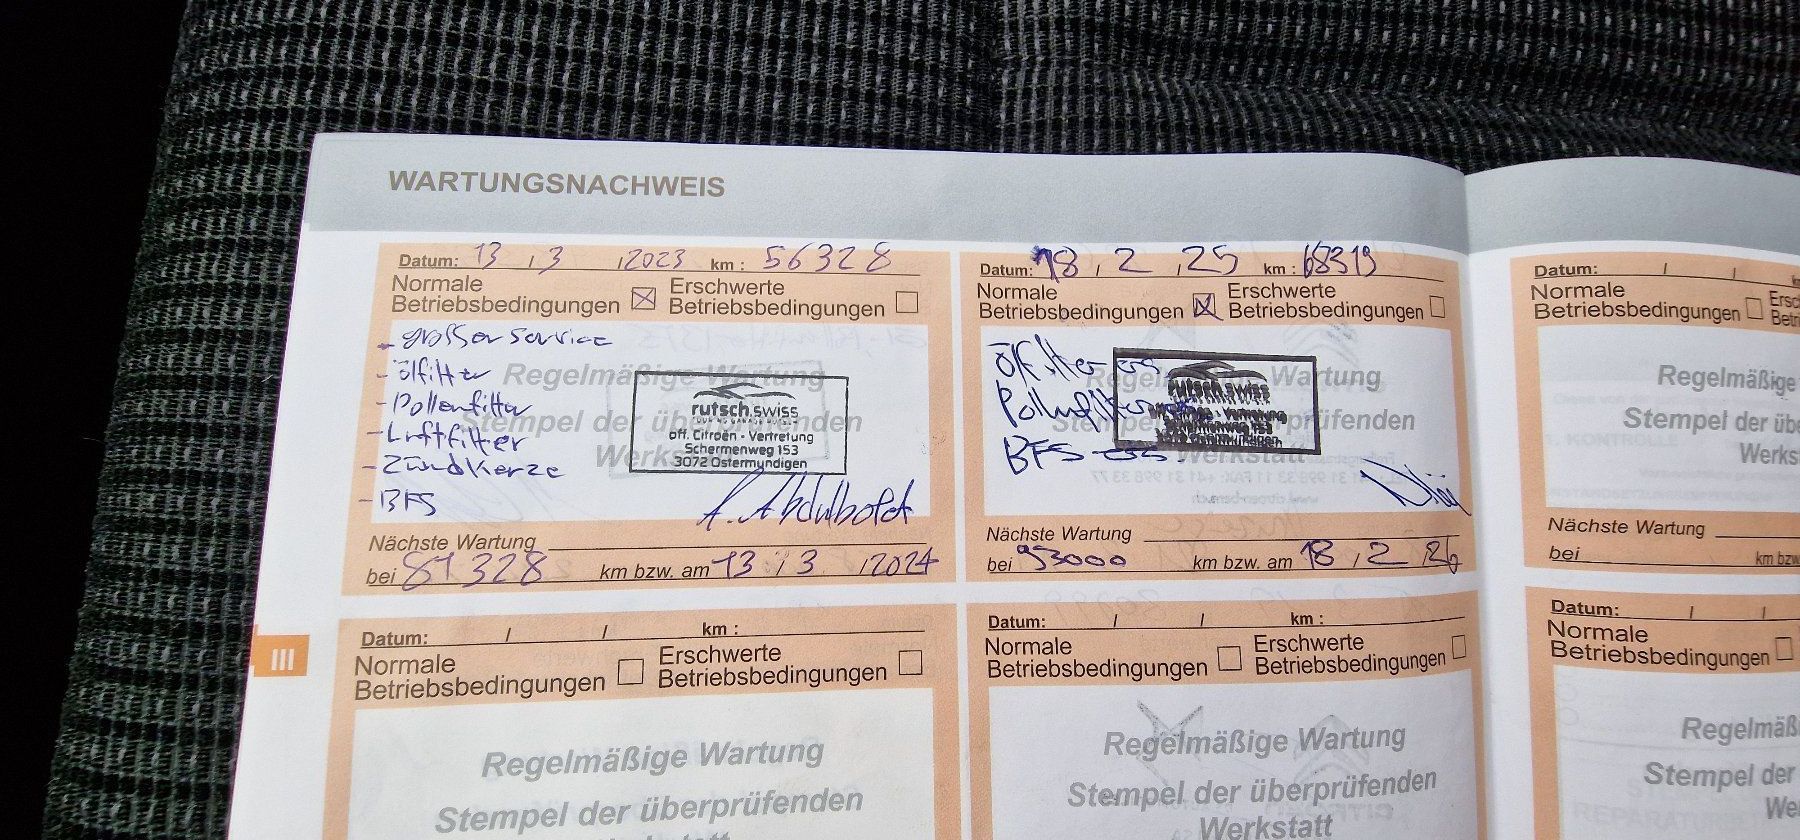 WARTUNGSNACHWEIS
Datum: 13 / 3 / 2023 km : 56328
Normale
Betriebsbedingungen
Erschwerte
Betriebsbedingungen
- großer Service
- ölfilter
- Pollenfilter
- Luftfilter
- Zündkerze
- BFS
Regelmäßige Wartung
Stempel der überprüfenden
Werkstatt
rutsch.swiss
off. Citroën - Vertretung
Schermenweg 153
3072 Ostermundigen
Nächste Wartung
bei 81328 km bzw. am 13 / 3 / 2024
Datum: 18 / 2 / 25 km : 68319
Normale
Betriebsbedingungen
Erschwerte
Betriebsbedingungen
Ölfilter
Pollenfilter
BFS
Regelmäßige Wartung
Stempel der überprüfenden
Werkstatt
rutsch.swiss
Nächste Wartung
bei 93000 km bzw. am 18 / 2 / 26
Datum: / /
Normale
Betriebsbedingungen
Regelmäßige
Stempel der
Werks
Nächste Wartung
bei km bzw
III
Datum: / / km :
Normale
Betriebsbedingungen
Erschwerte
Betriebsbedingungen
Regelmäßige Wartung
Stempel der überprüfenden
Datum: / / km :
Normale
Betriebsbedingungen
Erschwerte
Betriebsbedingungen
Regelmäßige Wartung
Stempel der überprüfenden
Werkstatt
Datum: / /
Normale
Betriebsbedingungen
Stempel der